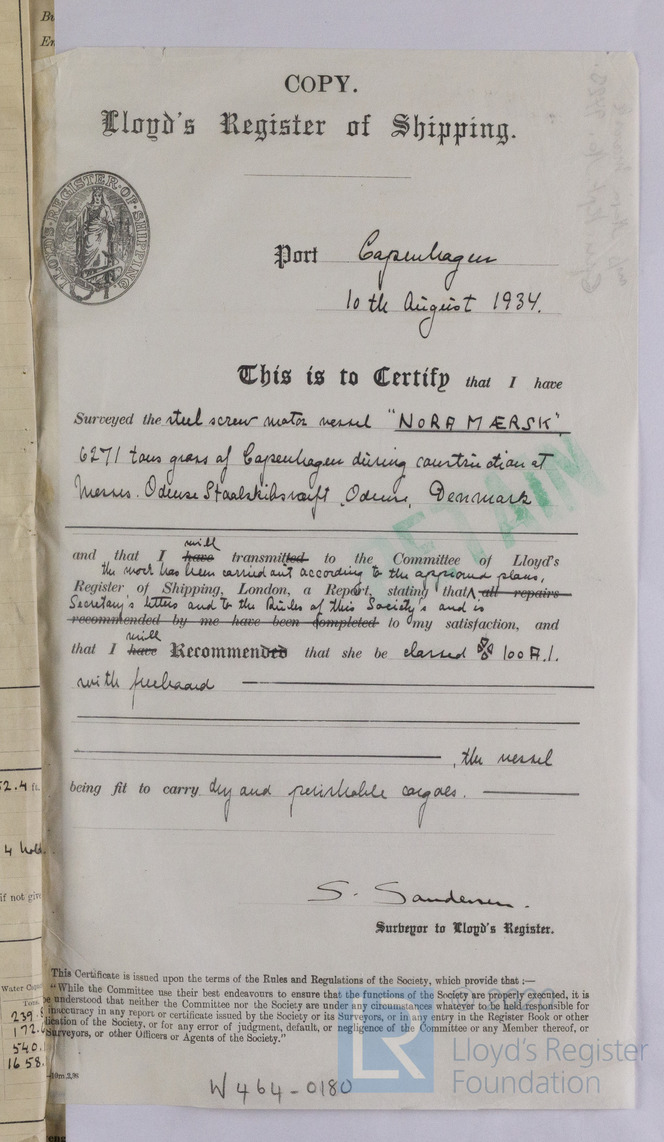 COPY.
Lloyd's Register of Shipping.
LLOYD'S·REGISTER·OF·SHIPPING
Port Copenhagen
10th August 1934.
This is to Certify that I have
Surveyed the steel screw motor vessel "NORA MÆRSK",
6271 tons gross of Copenhagen during construction at
Messrs. Odense Staalskibsværft, Odense, Denmark
RETAIN
will
and that I have transmitted to the Committee of Lloyd's
the work has been carried out according to the approved plans,
Register of Shipping, London, a Report, stating that all repairs
Secretary's letters and to the Rules of this Society's and is
recommended by me have been completed to my satisfaction, and
will
that I have Recommended that she be classed ✠ 100 A.1.
with freeboard
, the vessel
being fit to carry dry and perishable cargoes.
S. Sandersen.
Surveyor to Lloyd's Register.
This Certificate is issued upon the terms of the Rules and Regulations of the Society, which provide that :—
"While the Committee use their best endeavours to ensure that the functions of the Society are properly executed, it is
be understood that neither the Committee nor the Society are under any circumstances whatever to be held responsible for
inaccuracy in any report or certificate issued by the Society or its Surveyors, or in any entry in the Register Book or other
ication of the Society, or for any error of judgment, default, or negligence of the Committee or any Member thereof, or
Surveyors, or other Officers or Agents of the Society."
W464-0180
LR
Lloyd's Register
Foundation
2.4 ft.
4 hold.
if not give
Water Capa
Tons.
239.
172.
540.
1658.